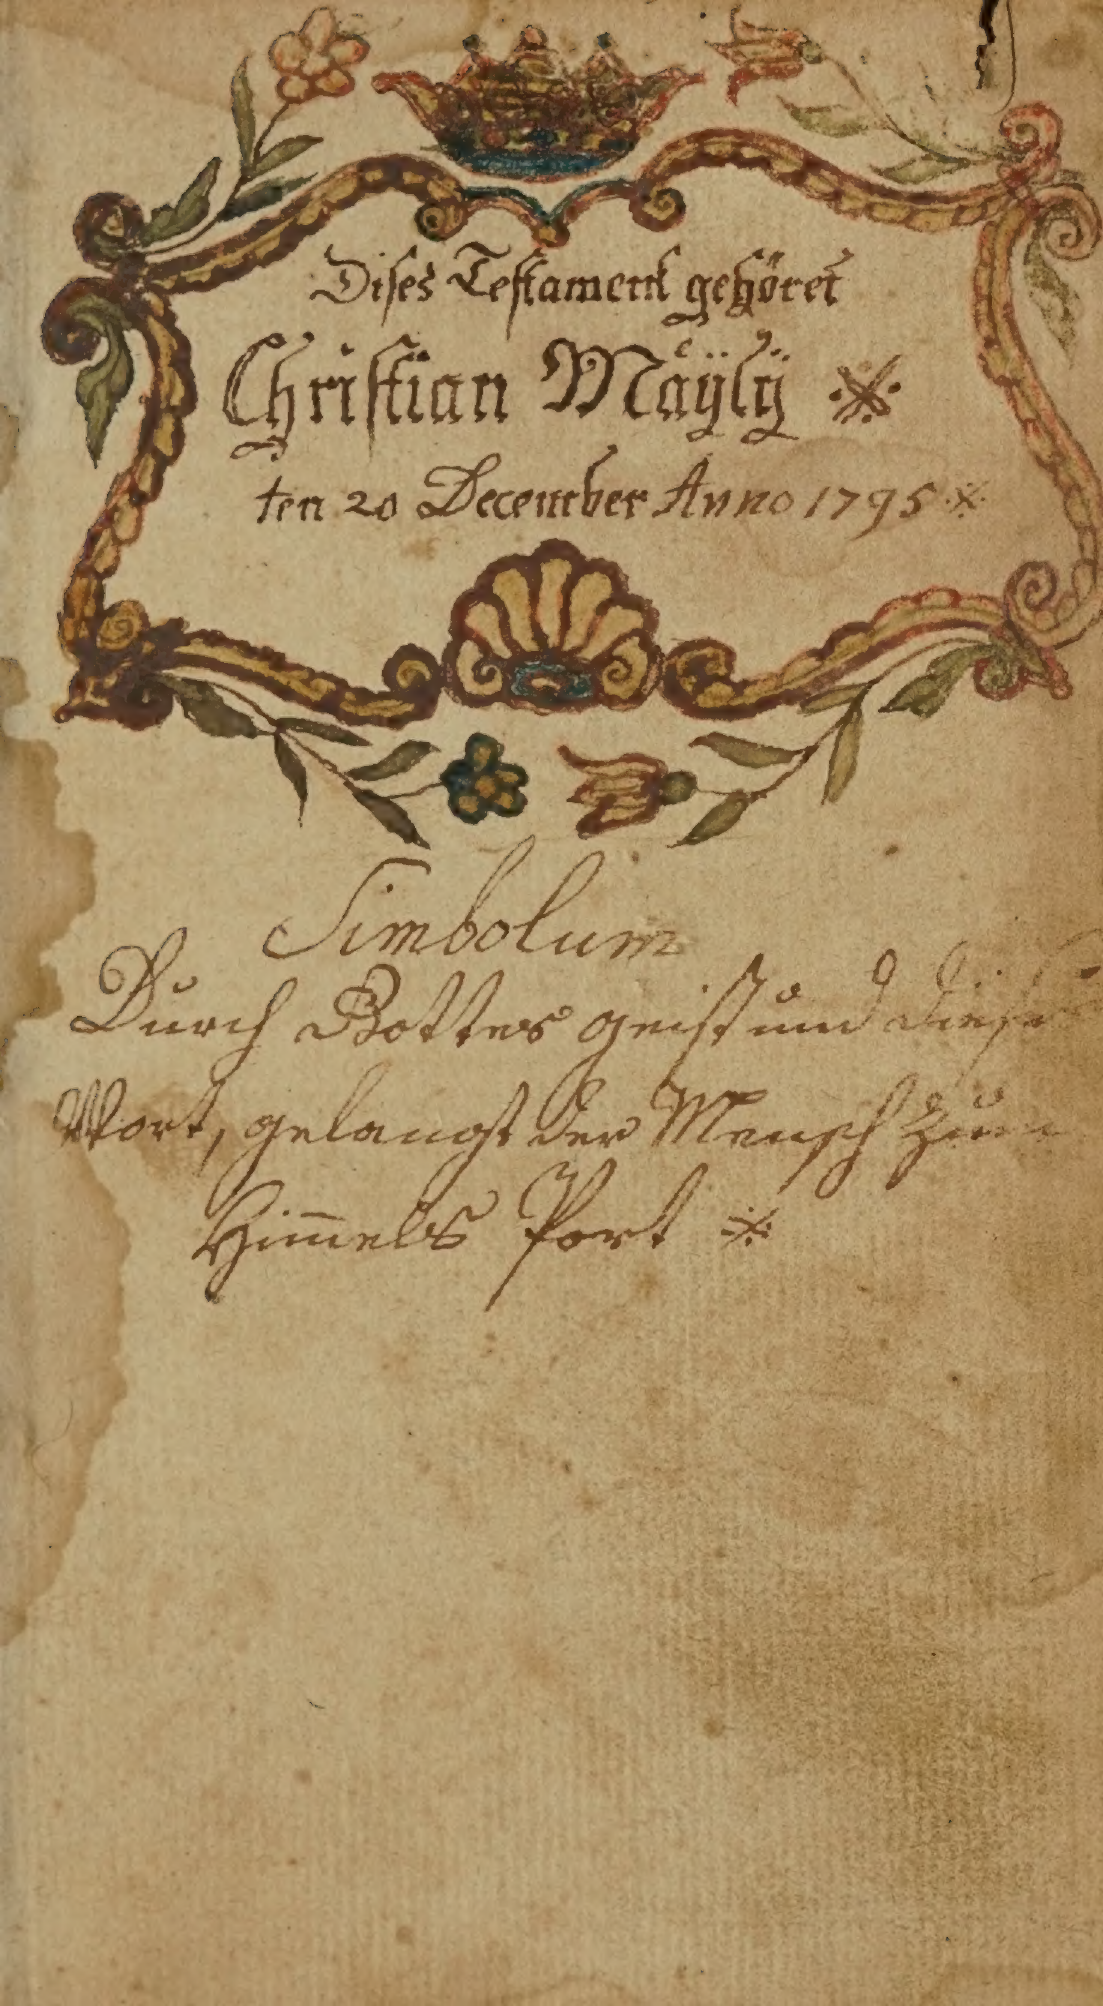 Dises Testament gehöret
Christian Mäÿlÿ
ten 20 December Anno 1795
Simbolum
Durch Gottes geist und dieses
Wort, gelangt der Mensch zur
Him̄els Port